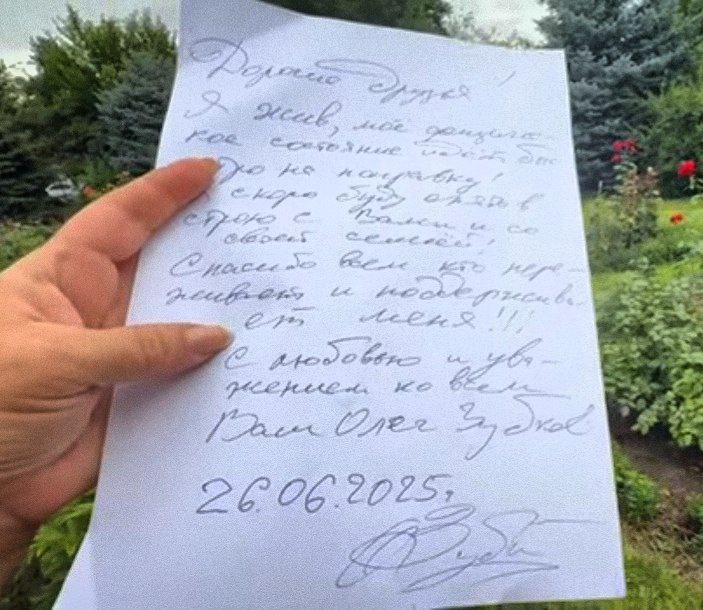 Дорогие друзья!
Я жив, моё
кое состояние идёт быс
тро на поправку!
скоро буду опять в
строю с Вами и со
своей семьёй!
Спасибо всем кто пере-
живает и поддержива-
ет меня!!!
С любовью и ува-
жением ко всем
Ваш Олег Зубков
26.06.2025г.
Зуб